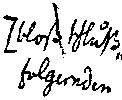 [bloß] schluß„
folgernden